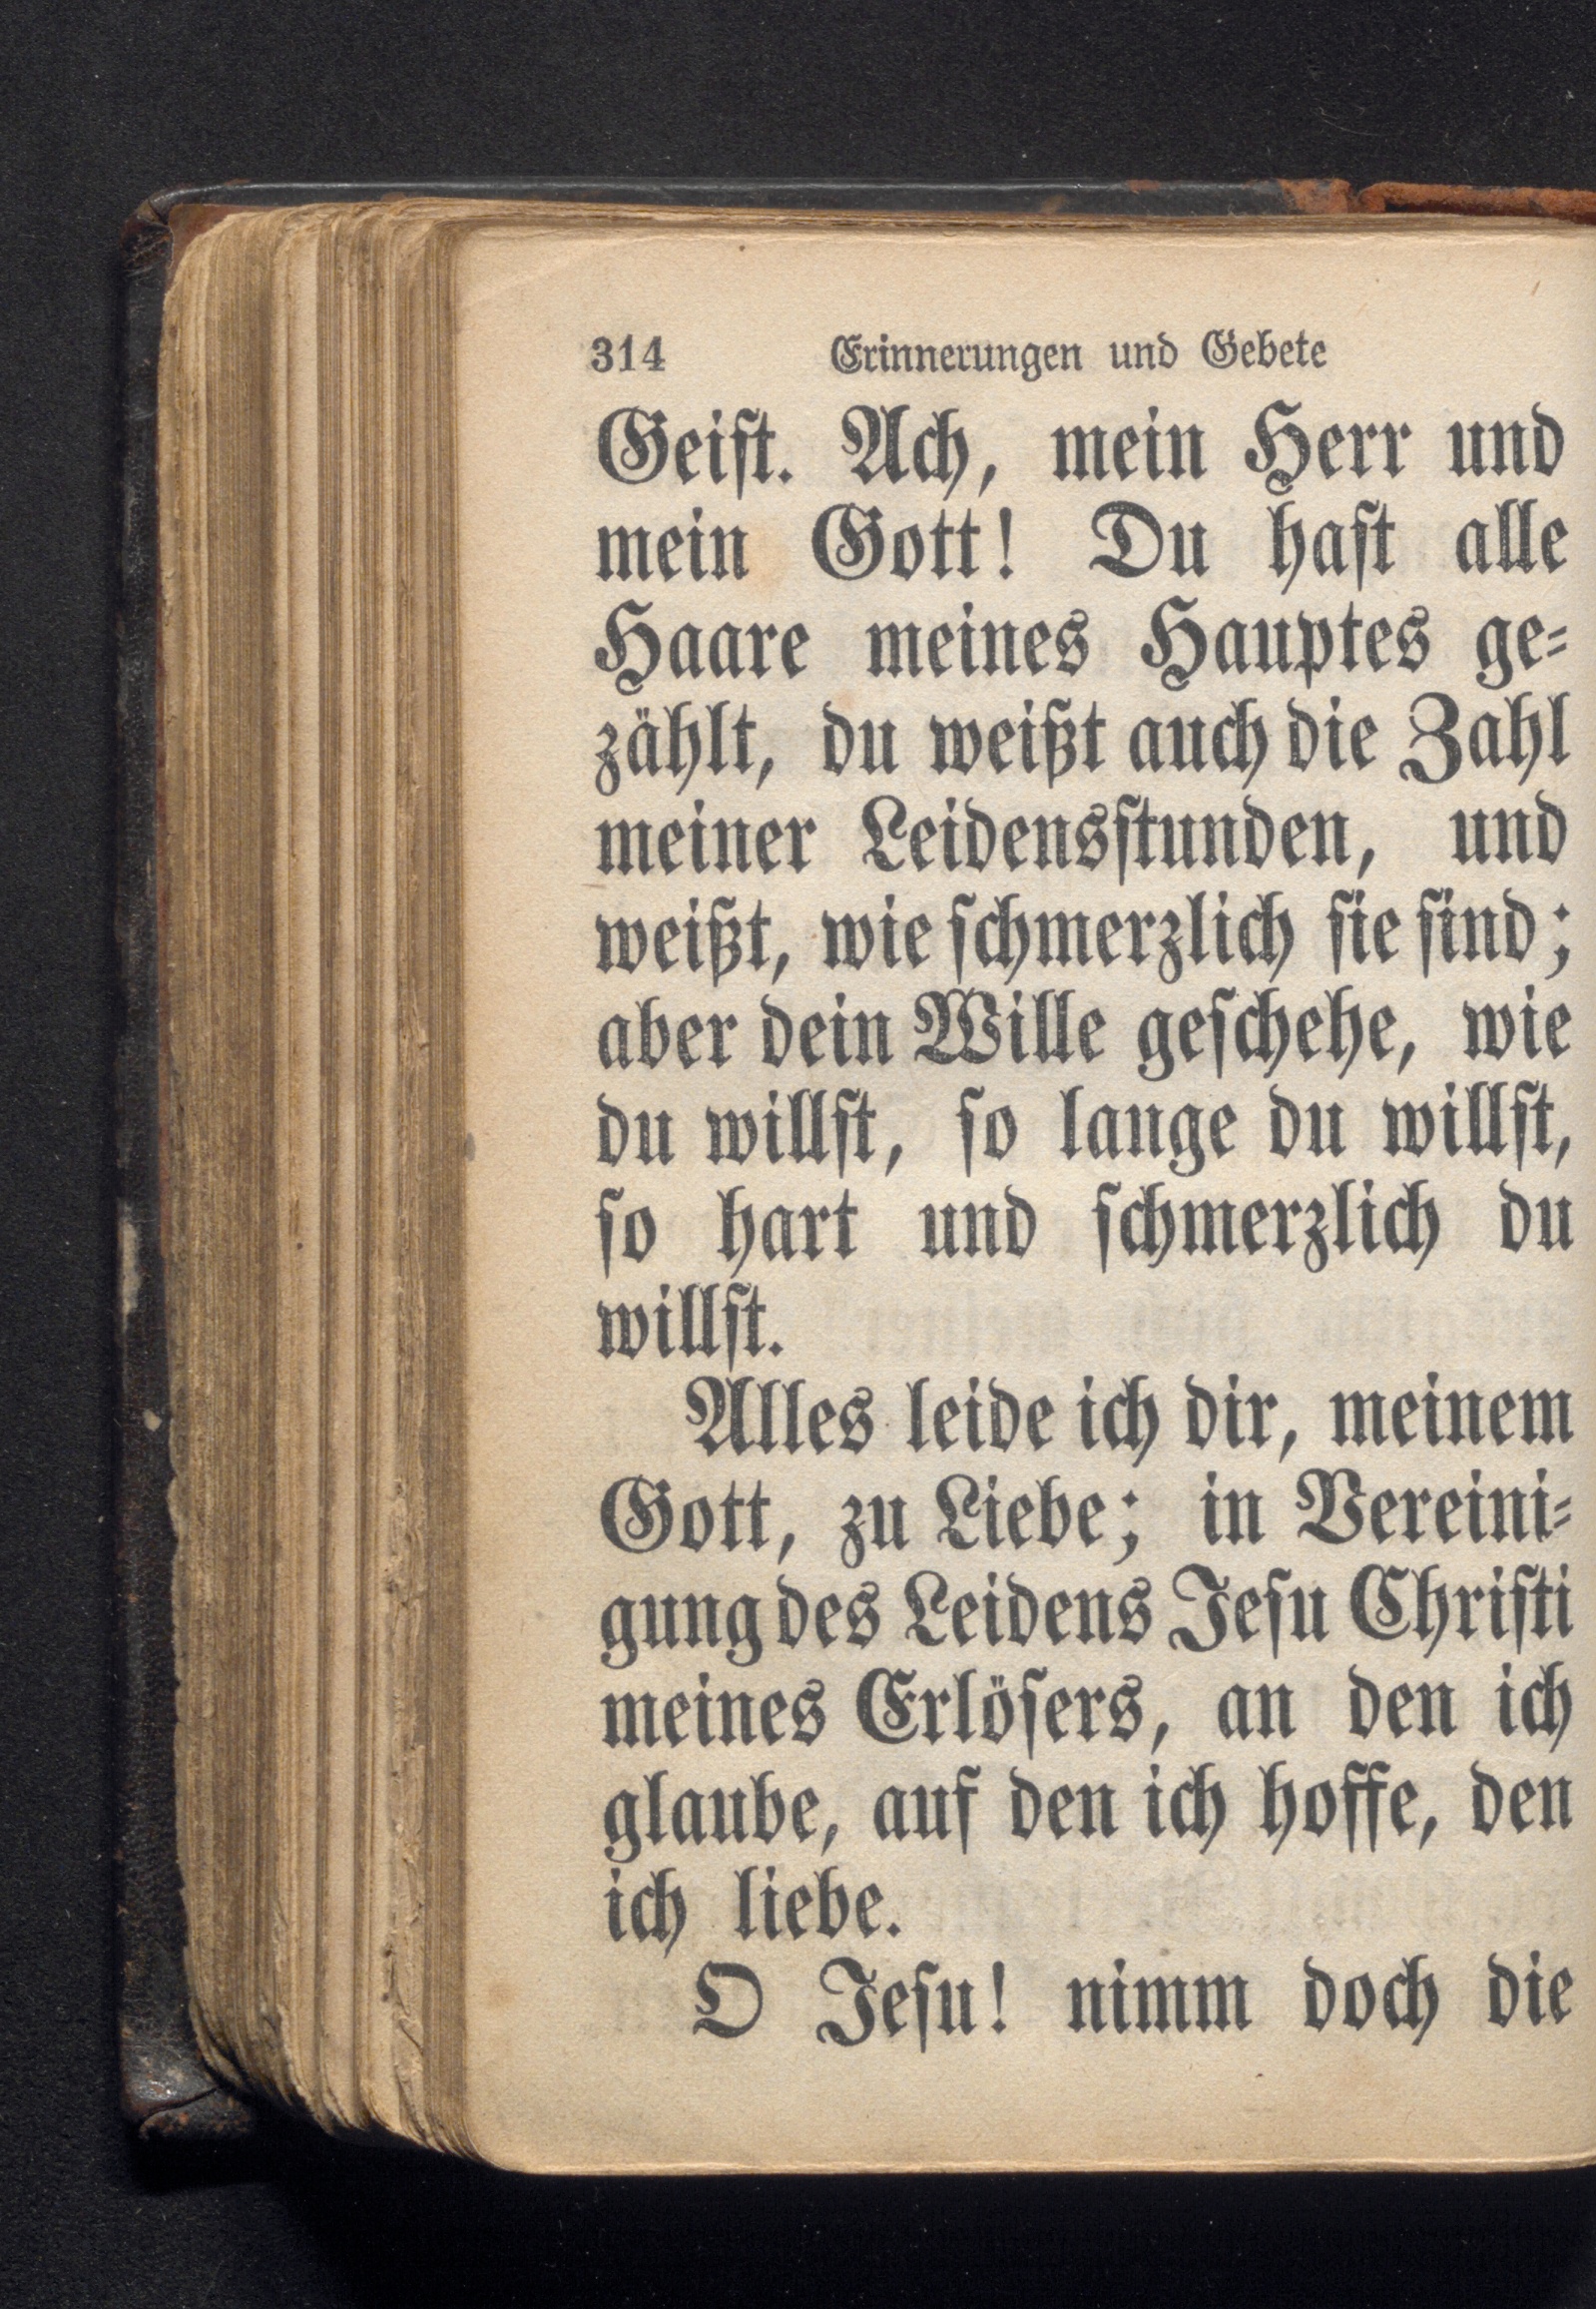 314 Erinnerungen und Gebete
Geiſt. Ach, mein Herr und
mein Gott! Du haſt alle
Haare meines Hauptes ge⸗
zählt, du weißt auch die Zahl
meiner Leidensſtunden, und
weißt, wie ſchmerzlich ſie ſind;
aber dein Wille geſchehe, wie
du willſt, ſo lange du willſt,
ſo hart und ſchmerzlich du
willſt.
Alles leide ich dir, meinem
Gott, zu Liebe; in Vereini⸗
gung des Leidens Jeſu Chriſti
meines Erlöſers, an den ich
glaube, auf den ich hoffe, den
ich liebe.
O Jeſu! nimm doch die